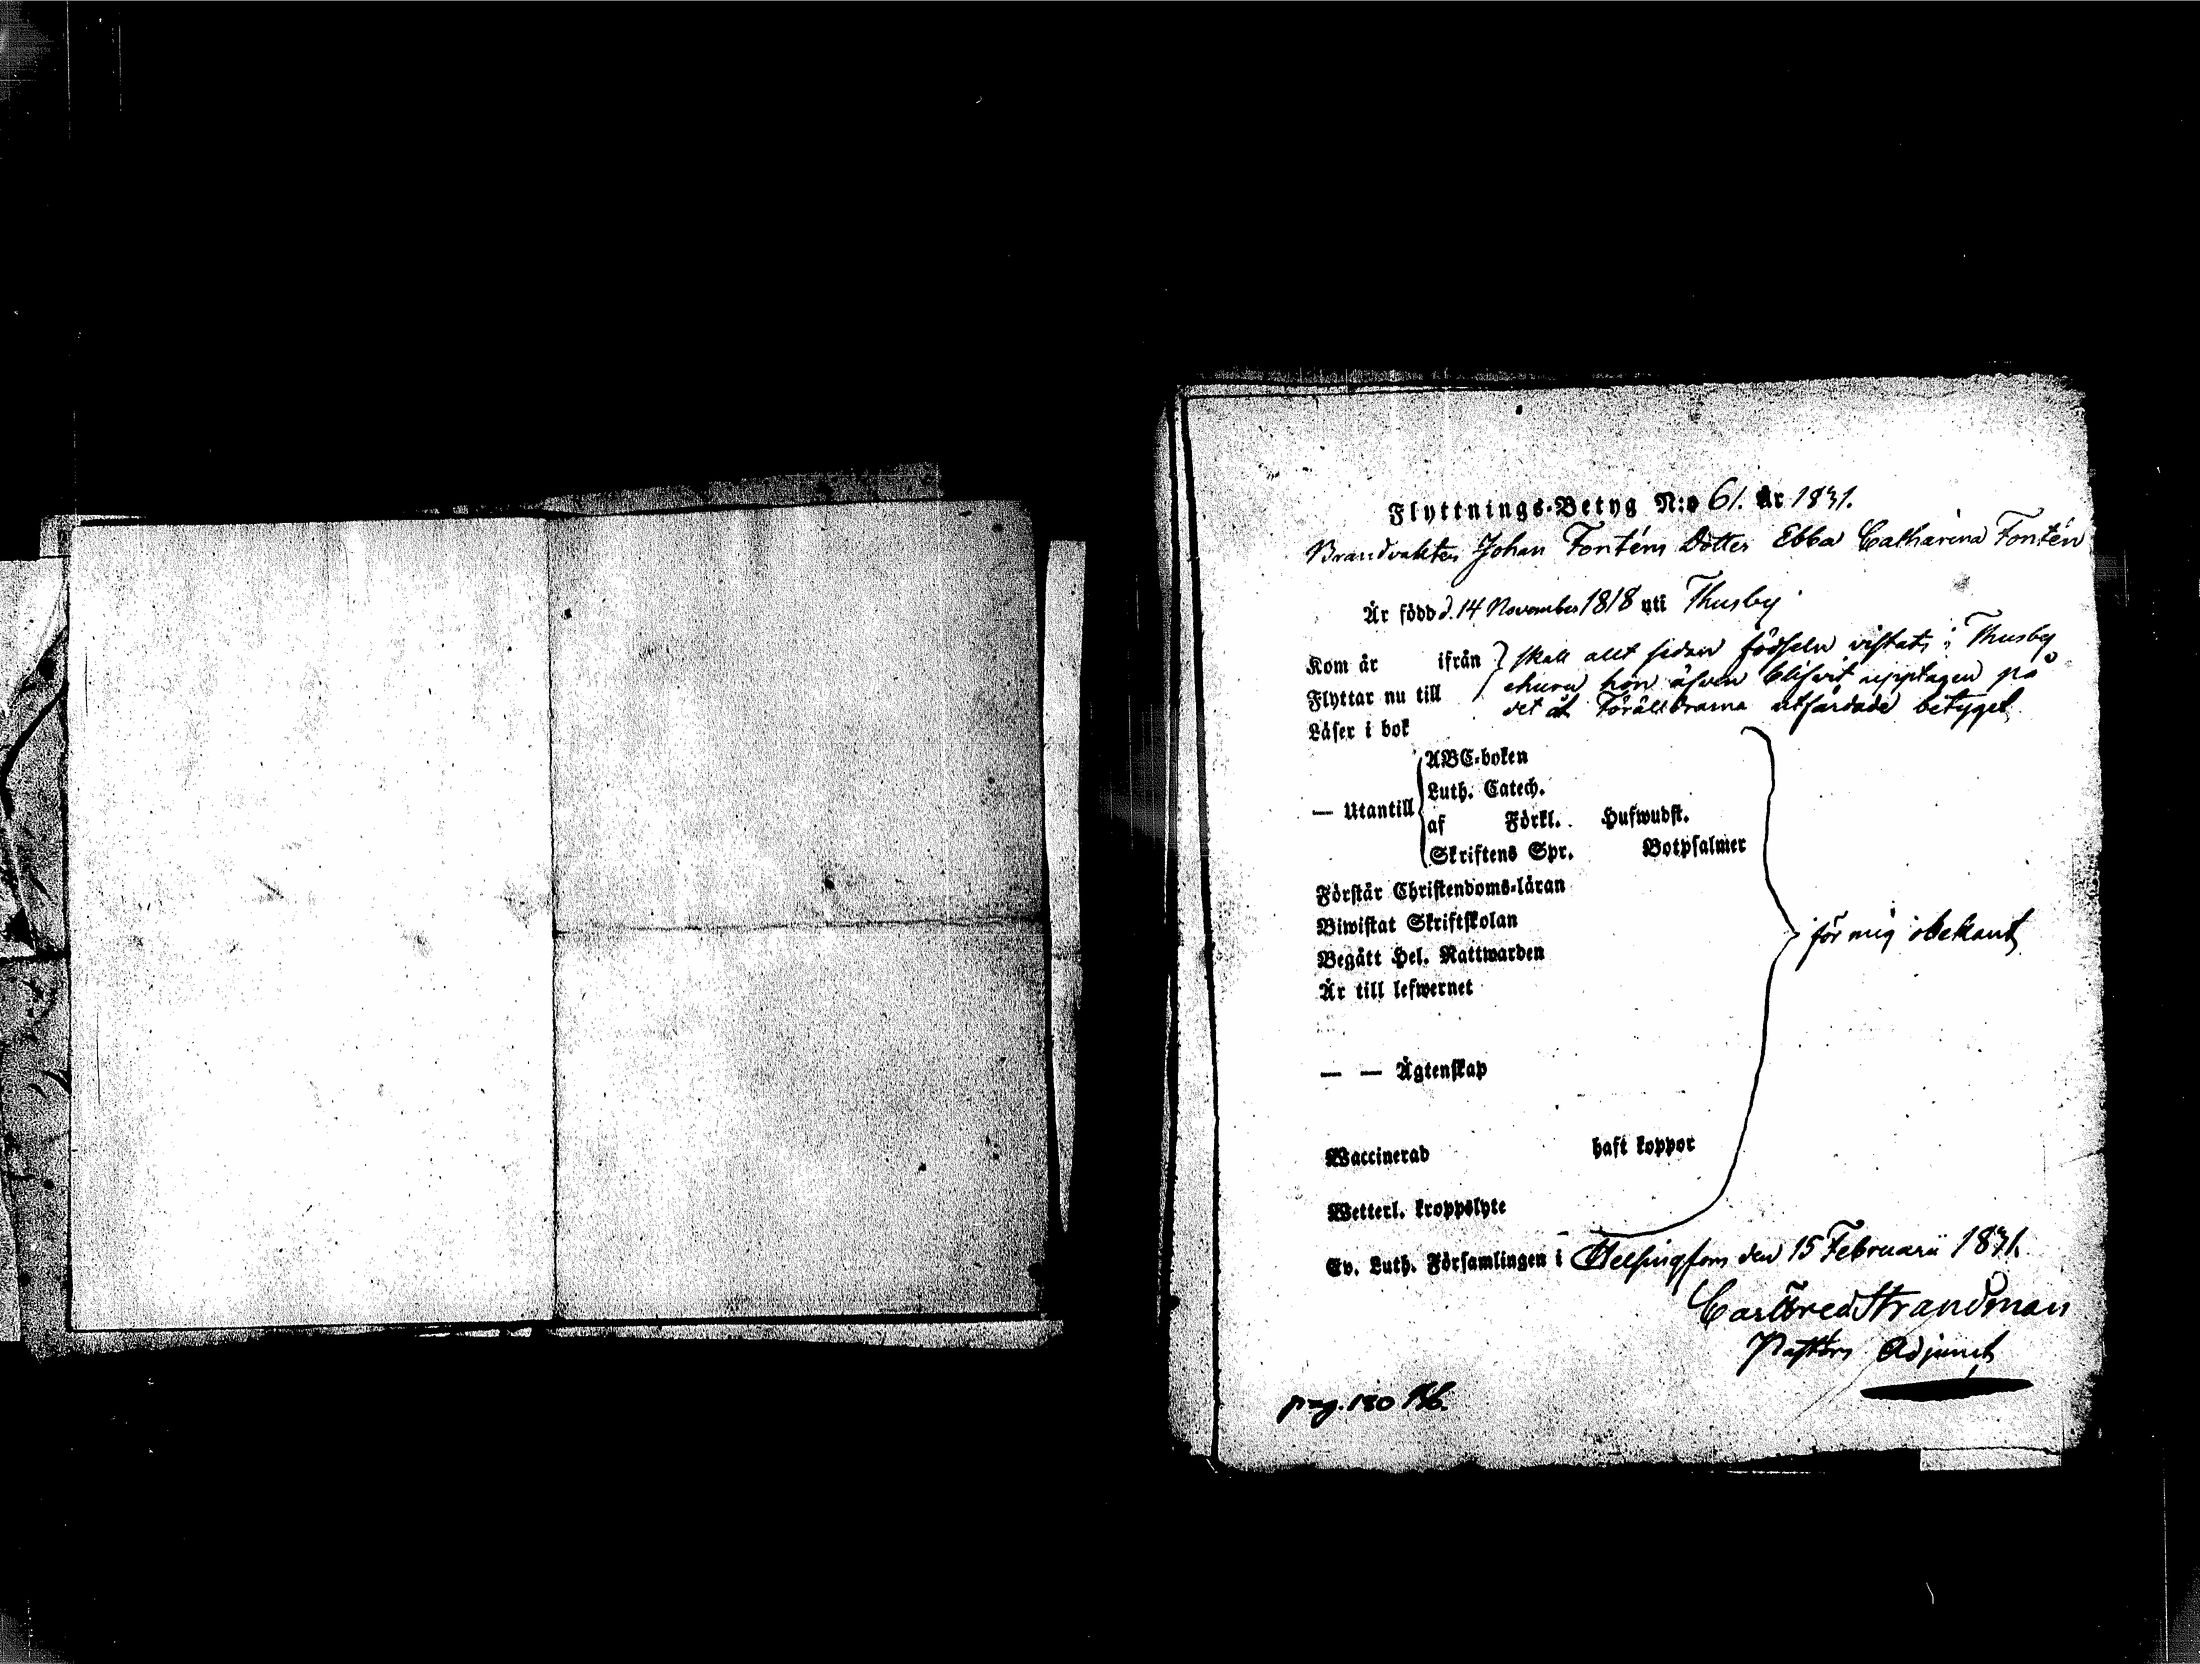 Flyttnings-Betyg N:o 61. År 1831.
Brandvakten Johan Fonténs Dotter Ebba Catharina Fontén
Är född d. 14 November 1818 uti Thusby
Kom år ifrån } skall allt sedan födseln vistats i Thusby
Flyttar nu till ehuru hon äfven blifvit upptagen på
det åt Föräldrarna utfärdade betyget
Läser i bok
ABC-boken
Luth. Catech.
— Utantill
af Förkl. Hufwudst.
Skriftens Spr. Botpsalmer
Förstår Christendoms-läran
Biwistat Skriftskolan
för mig obekant
Begått Hel. Nattwarden
Är till lefwernet
— — Ägtenskap
Waccinerad haft koppor
Wetterl. kroppslyte
Ev. Luth. Församlingen i Helsingfors den 15 Februarii 1831.
Carl Fred Strandman
Pastors Adjunct
pag. 180